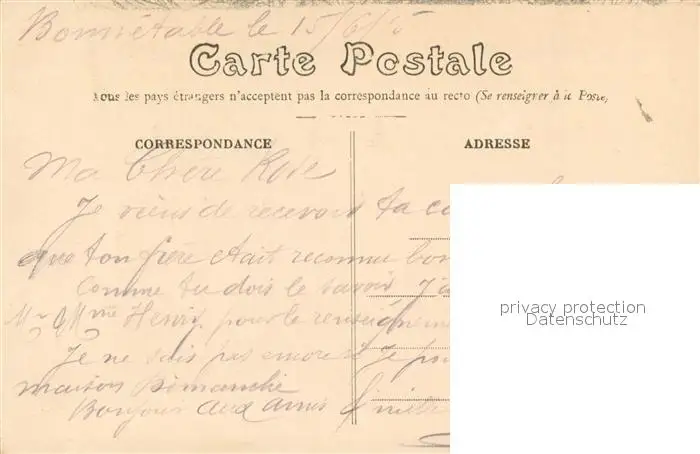 Bonnétable le 15/6/15
Carte Postale
Tous les pays étrangers n'acceptent pas la correspondance au recto (Se renseigner à la Poste)
CORRESPONDANCE
ADRESSE
Ma Chère Rose
Je viens de recevoir ta
que ton frère etait reconnu bon
Comme tu dois le savoir
Mr & Mme Henry pour le renseigneme
Je ne sais pas encore si je
maison Dimanche
Bonjour aux amis
privacy protection
Datenschutz